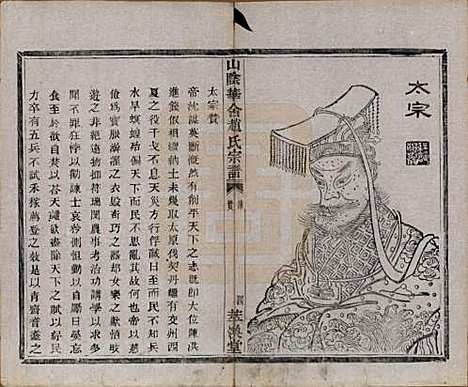 太宗
山陰華舍趙氏宗譜
太宗贊
帝沈謀英斷慨然有創平天下之志既即大位陳洪
進錢俶相繼納土未幾取太原伐契丹繼有交州西
夏之役干戈不息天災方行俘馘日至而民不知兵
水旱螟蝗殆徧天下而民不思亂其故何也帝以慈
儉為寶服澣濯之衣毀奇巧之器却女樂之獻悟畋
遊之非絕遠物抑符瑞閔農事考治功講學以求多
聞不罪狂悖以勸諫士哀矜惻怛勤以自勵日晏忘
食至於欲自焚以答天譴欲盡除天下之賦以紓民
力卒有五兵不試禾稼薦登之效是以青齊耆耋之